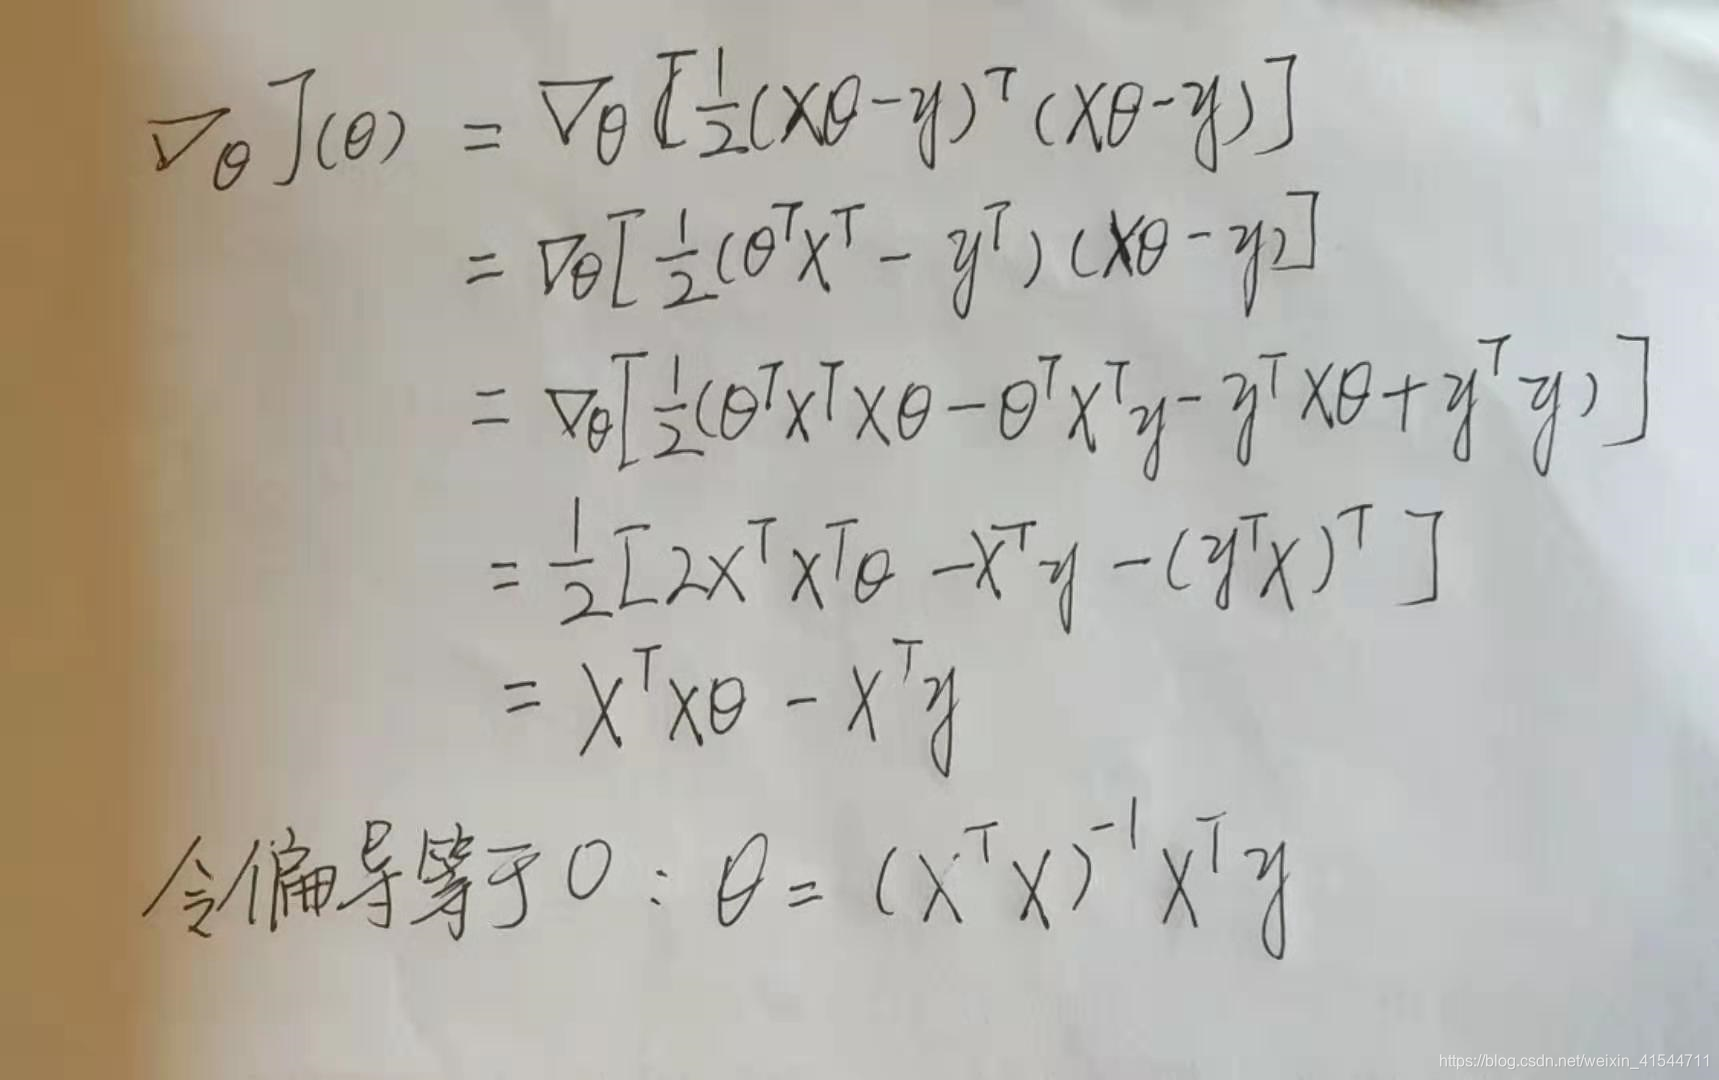 ∇θ J(θ) = ∇θ [½(Xθ-y)ᵀ (Xθ-y)]
= ∇θ[½(θᵀXᵀ - yᵀ) (Xθ-y)]
= ∇θ[½(θᵀXᵀXθ - θᵀXᵀy - yᵀXθ + yᵀy)]
= ½[2XᵀXᵀθ - Xᵀy - (yᵀX)ᵀ]
= XᵀXθ - Xᵀy
令偏导等于0 : θ = (XᵀX)⁻¹Xᵀy
https://blog.csdn.net/weixin_41544711